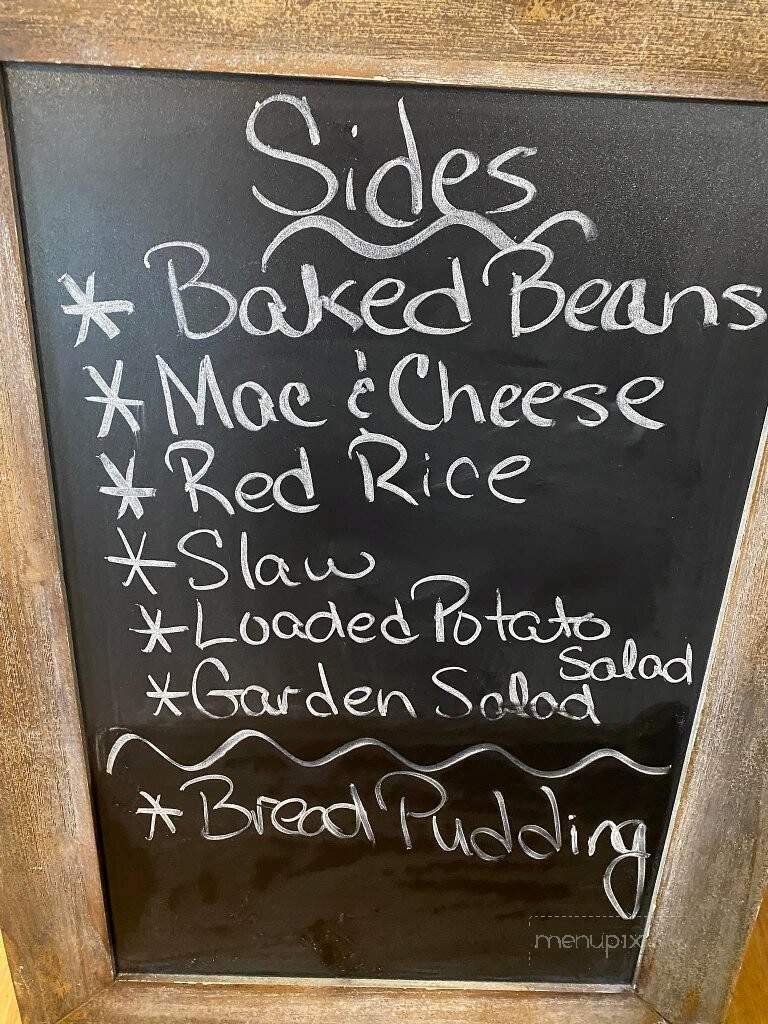 Sides
* Baked Beans
* Mac & Cheese
* Red Rice
* Slaw
* Loaded Potato
Salad
* Garden Salad
* Bread Pudding
menupix